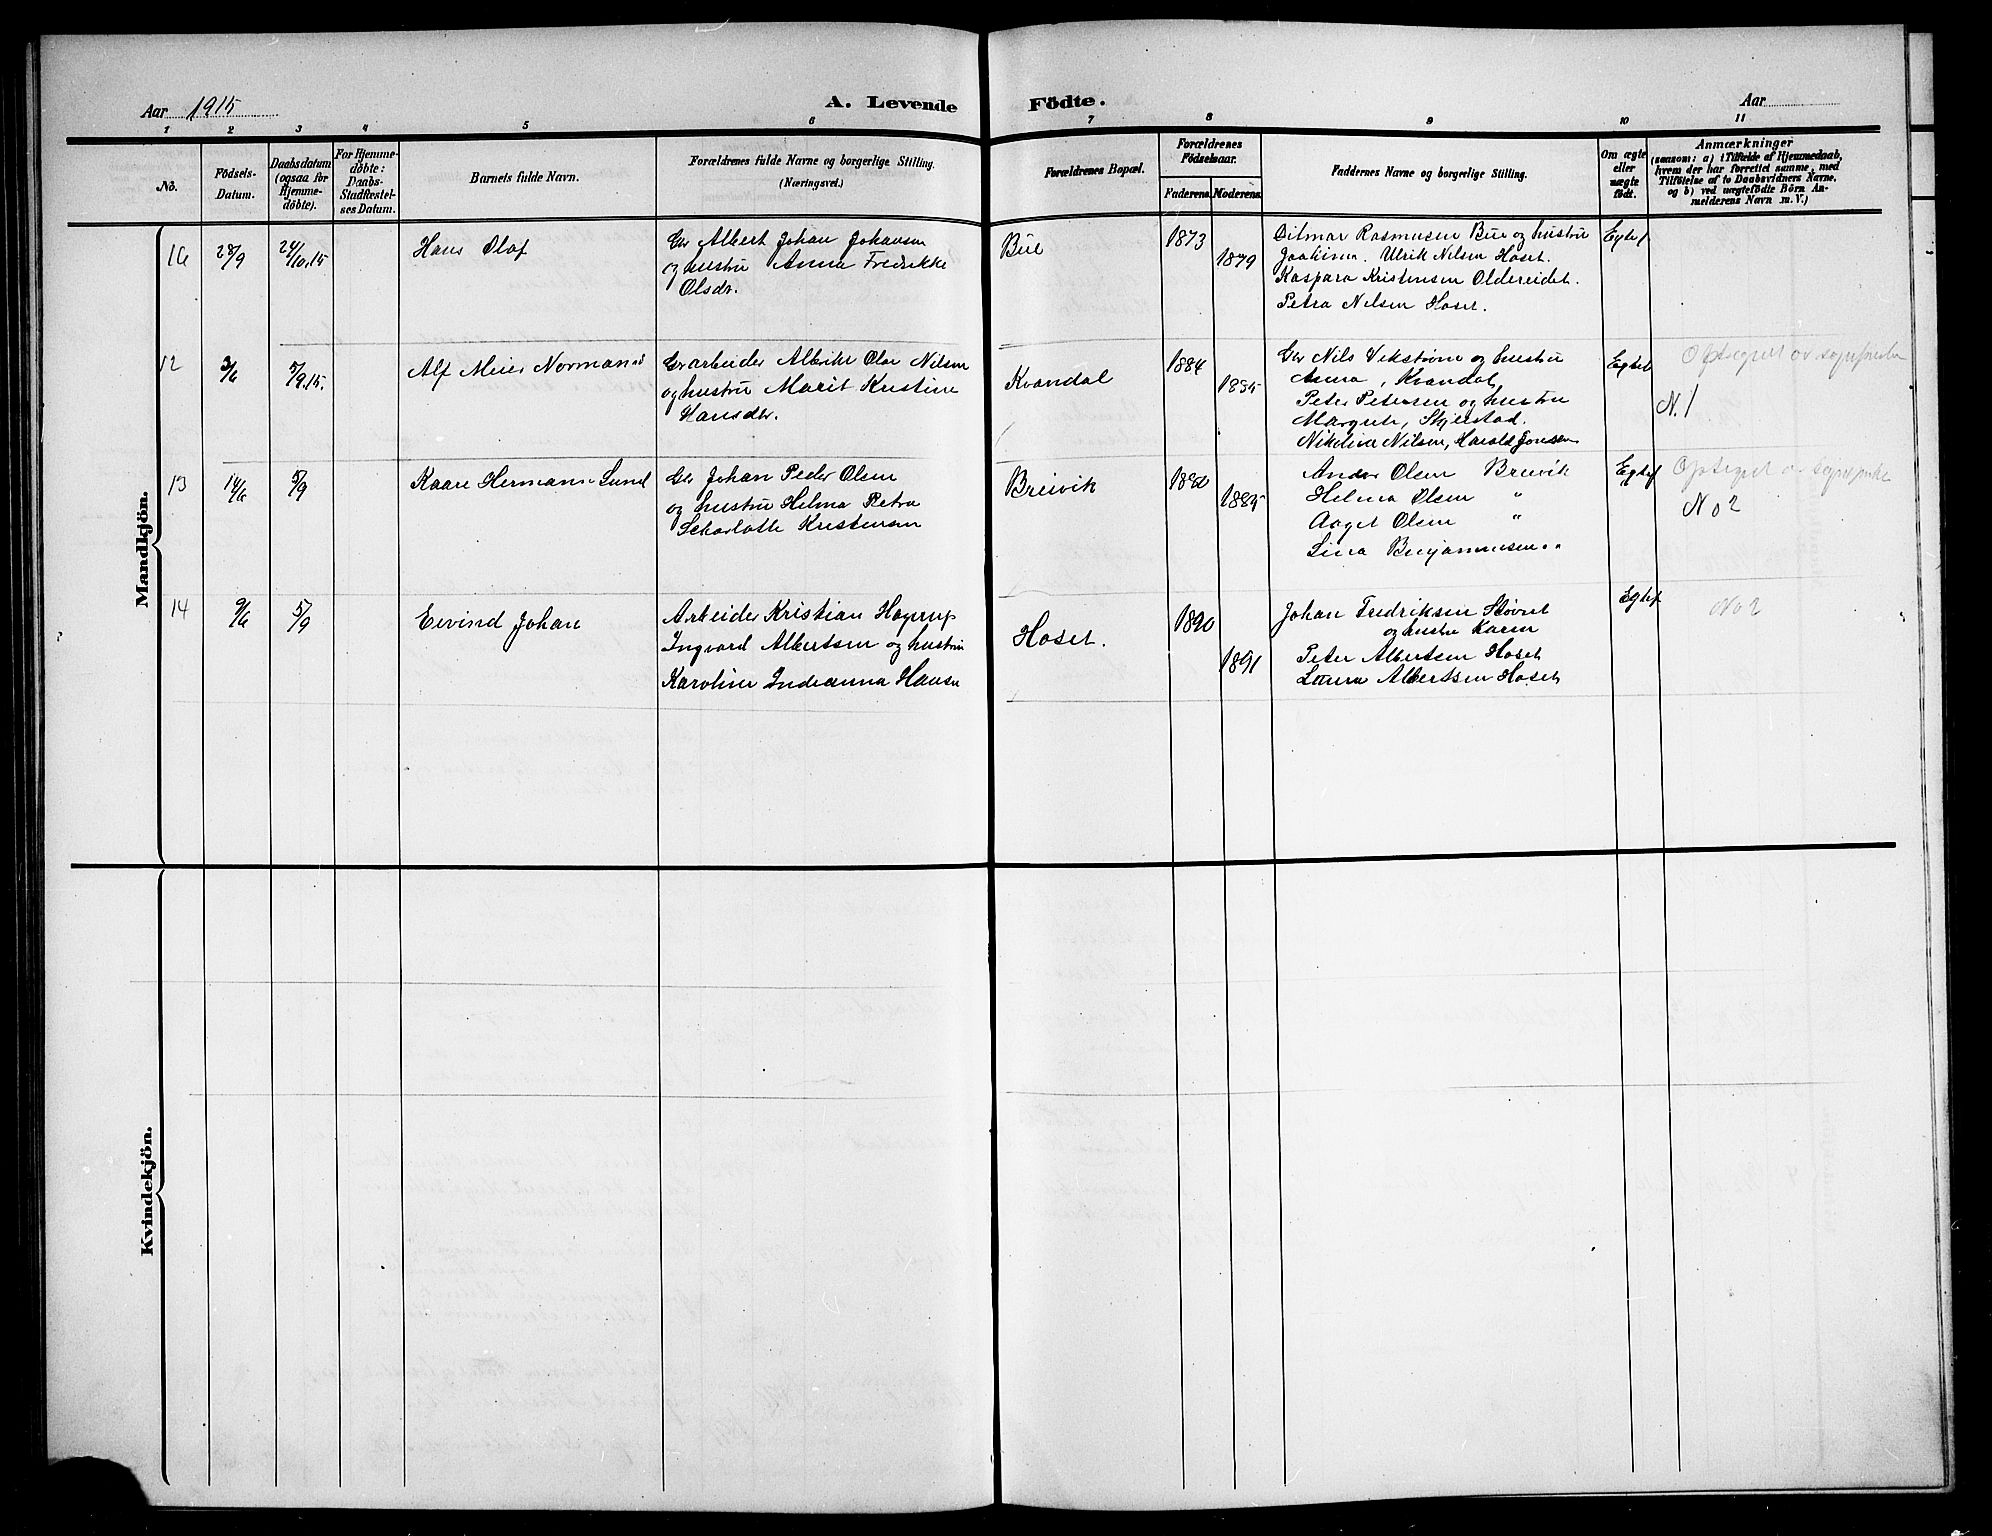 Aar 1915
A. Levende Födte.
Aar
1 2 3 4 5 6 7 8 9 10 11
No.
Födsels-Datum.
Daabsdatum (ogsaa for Hjemme-döbte).
For Hjemme-döbte: Daabs-Stadfæstel-ses Datum.
Barnets fulde Navn.
Forældrenes fulde Navne og borgerlige Stilling.
(Næringsvei.)
Forældrenes Bopæl.
Forældrenes Födselsaar.
Faderens Moderens
Faddernes Navne og borgerlige Stilling.
Om ægte eller uægte födt.
Anmærkninger
(saasom: a) i Tilfælde af Hjemmedaab,
hvem der har forrettet samme, med
Tilföielse af to Daabsvidners Navne,
og b) ved uægtefödte Börn An-
melderens Navn m. V.)
Mandkjön.
16 28/9 24/10.15 Hans Olaf
Gbr Albert Johan Johansen
og hustru Anna Fredrikke
Olsdr.
Bue 1873 1879
Ditmar Rasmusen Bue og hustru
Joakima. Ulrik Nilsen Hoset.
Kaspara Kristensen Oldereidet.
Petra Nilsen Hoset.
Egtef
12 3/6 5/9.15. Alf Meier Normann
Grarbeider Albrikt Olai Nilsen
og hustru Marit Kristine
Hansdr.
Kvandal 1884 1885
Gbr Nils Vikstrøm og hustru
Anna, Kvandal,
Peter Petersen og hustru
Margrete, Skjerstad.
Nikoline Nilsen, Harald Jonsen
Egtef
N. 1
13 14/6 5/9 Kaare Hermann Lund
Gbr Johan Peder Olsen
og hustru Helma Petra
Scharlotte Kristensen
Breivik 1880 1885
Anders Olsen Breivik
Helma Olsen "
Aaget Olsen "
Lina Benjaminsen "
Egtef
No 2
14 9/6 5/9 Eivind Johan
Arbeider Kristian Hagerup
Ingvard Albertsen og hustru
Karoline Indianna Hansen
Hoset. 1890 1891
Johan Fredriksen Støvset
og hustru Karen
Peter Albertsen Hoset
Laura Albertsen Hoset
Egtef
No 2
Kvindekjön.